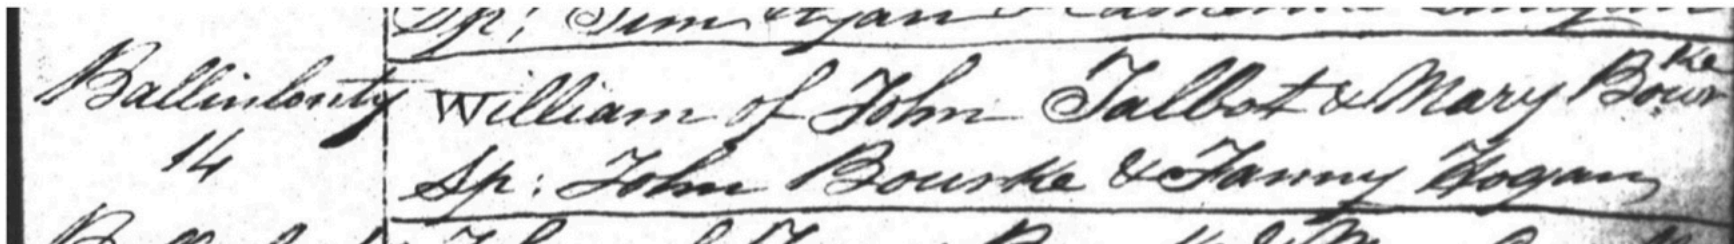 Sp: Tim Ryan & Catherine
Ballinlonty William of John Talbot & Mary Bourke
14 Sp: John Bourke & Fanny Hogan